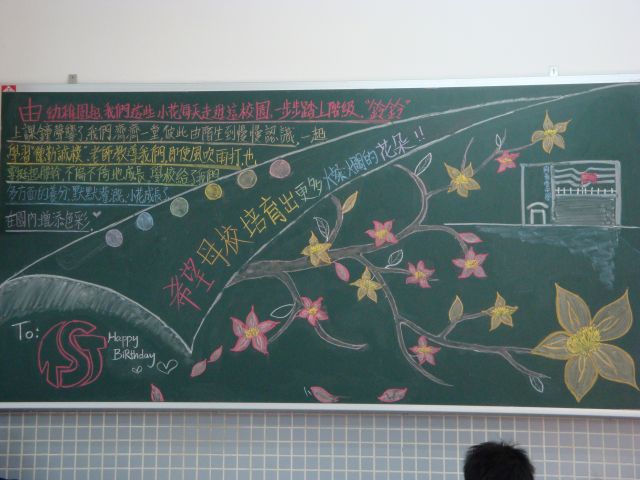 由幼稚園起,我們這些小花每天走進這校園,一步步踏上階級,"鈴鈴"
上課鐘聲響了我們齊齊一堂彼此由陌生到慢慢認識,一起
學習勤勞誠樸,老師教導我們,即使風吹雨打,也
要挺起胸膛,不屈不
地成長,學校給了我們
多方面的養分,默默
小花成長了
在園內增添色彩.
希望母校培育出更多燦爛的花朵!!
To:
TST
Happy
Birthday